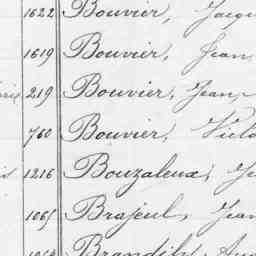 1622 Bouvier, Jacqu
1619 Bouvier, Jean
219 Bouvier, Jean,
760 Bouvier, Victo
1216 Bouzaleux, Je
1065 Brajeul, Jean
Brandily